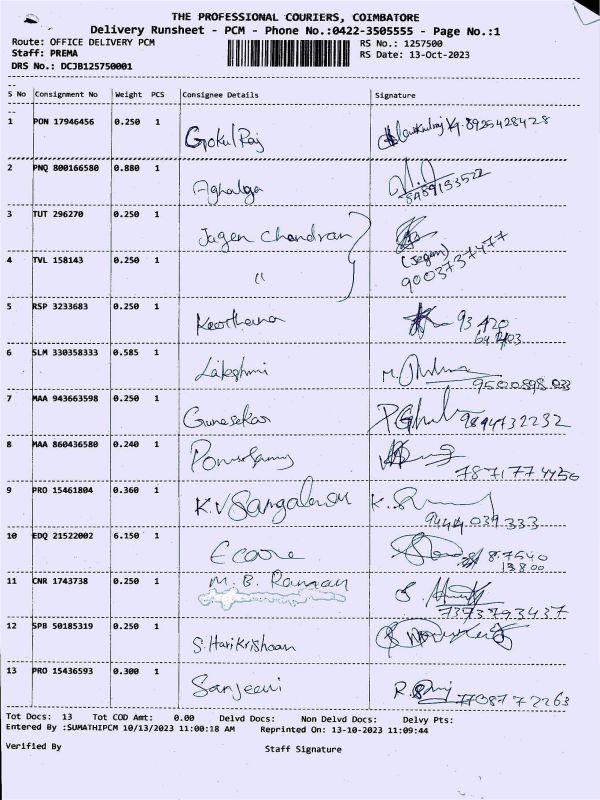 THE PROFESSIONAL COURIERS, COIMBATORE
Delivery Runsheet - PCM - Phone No.:0422-3505555 - Page No.:1
Route: OFFICE DELIVERY PCM
RS No.: 1257500
Staff: PREMA
RS Date: 13-Oct-2023
DRS No.: DCJB125750001
S No Consignment No Weight PCS Consignee Details Signature
1 PON 17946456 0.250 1 Gokul Raj 8925428428
2 PNQ 800166580 0.880 1 Aghalga 8489133522
3 TUT 296270 0.250 1 Jagen Chandran
4 TVL 158143 0.250 1 〃 (Jegan) 9003737477
5 RSP 3233683 0.250 1 Keerthana 93420
6 SLM 330358333 0.585 1 Lakshmi 9500898033
7 MAA 943663598 0.250 1 Gunesekar 9894732232
8 MAA 860436580 0.240 1 7871774456
9 PRO 15461804 0.360 1 K.V 9444 039 333
10 EDQ 21522002 6.150 1 Ecare
11 CNR 1743738 0.250 1 M. B. Raman 7373793437
12 SPB 50185319 0.250 1 S. Harikrishnan
13 PRO 15436593 0.300 1 Sanjeevi 7708772263
Tot Docs: 13 Tot COD Amt: 0.00 Delvd Docs: Non Delvd Docs: Delvy Pts:
Entered By :SUMATHIPCM 10/13/2023 11:00:18 AM Reprinted On: 13-10-2023 11:09:44
Verified By Staff Signature